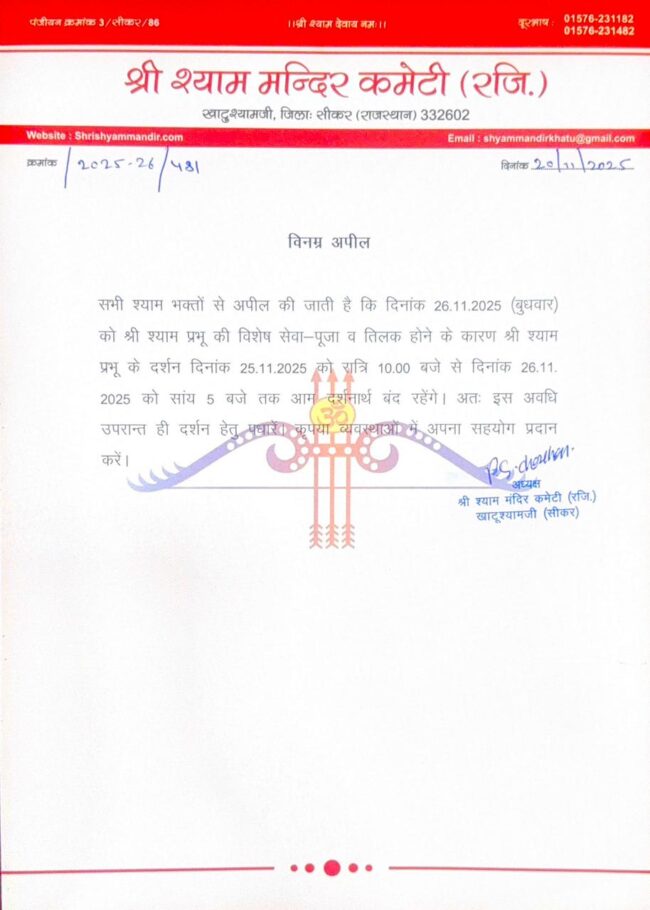 पंजीयन क्रमांक 3/सीकर/86
।।श्री श्याम देवाय नमः।।
दूरभाष : 01576-231182
01576-231482
श्री श्याम मन्दिर कमेटी (रजि.)
खाटुश्यामजी, जिलाः सीकर (राजस्थान) 332602
Website : Shrishyammandir.com
Email : shyammandirkhatu@gmail.com
क्रमांक / 2025-26 / 481
दिनांक 20/11/2025
विनम्र अपील
सभी श्याम भक्तों से अपील की जाती है कि दिनांक 26.11.2025 (बुधवार)
को श्री श्याम प्रभू की विशेष सेवा–पूजा व तिलक होने के कारण श्री श्याम
प्रभू के दर्शन दिनांक 25.11.2025 को रात्रि 10.00 बजे से दिनांक 26.11.
2025 को सांय 5 बजे तक आम दर्शनार्थ बंद रहेंगे। अतः इस अवधि
ॐ
उपरान्त ही दर्शन हेतु पधारें। कृपया व्यवस्थाओं में अपना सहयोग प्रदान
करें।
अध्यक्ष
श्री श्याम मंदिर कमेटी (रजि.)
खाटूश्यामजी (सीकर)